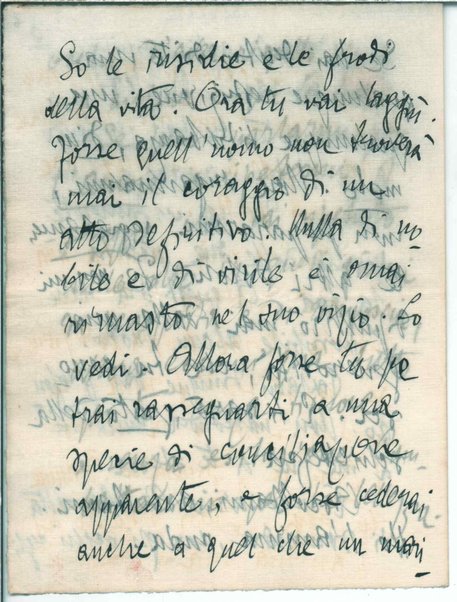 So le insidie e le frodi
della vita. Ora tu vai laggiù.
Forse quell'uomo non troverà
mai il coraggio di un
atto definitivo. Nulla di no
bile e di virile è omai
rimasto nel suo vizio. Lo
vedi. Allora forse tu po
trai rassegnarti a una
specie di conciliazione
apparente, e forse cederai
anche a quel che un mari